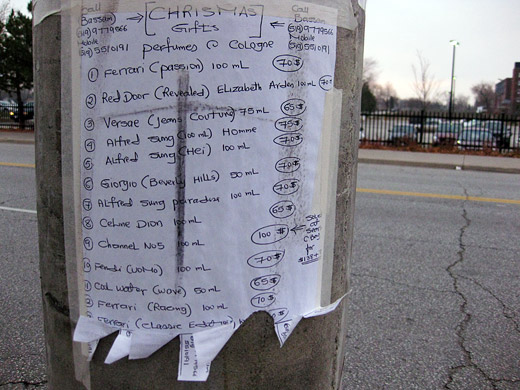 Call Bassam
(519) 9779566
Mobile
(519) 5510191
[CHRISMAS]
Gifts
Call Bassam
(519) 9779566
Mobile
(519) 5510191
perfumes & Cologne
① Ferrari (passion) 100 mL 70$
② Red Door (Revealed) Elizabeth Arden 100 mL 70$
③ Versae (Jeans Couture) 75 mL 65$
④ Alfred Sung (100 mL) Homme 75$
⑤ Alfred Sung (Hei) 100 mL 70$
⑥ Giorgio (Beverly Hills) 50 mL 70$
⑦ Alfred Sung paradox 100 mL 70$
⑧ Celine Dion 100 mL 65$
⑨ Channel No5 100 mL 100$
⑩ (Uomo) 100 mL 70$
Cool Water (wave) 50 mL 65$
Ferrari (Racing) 100 mL 70$
Ferrari (classic